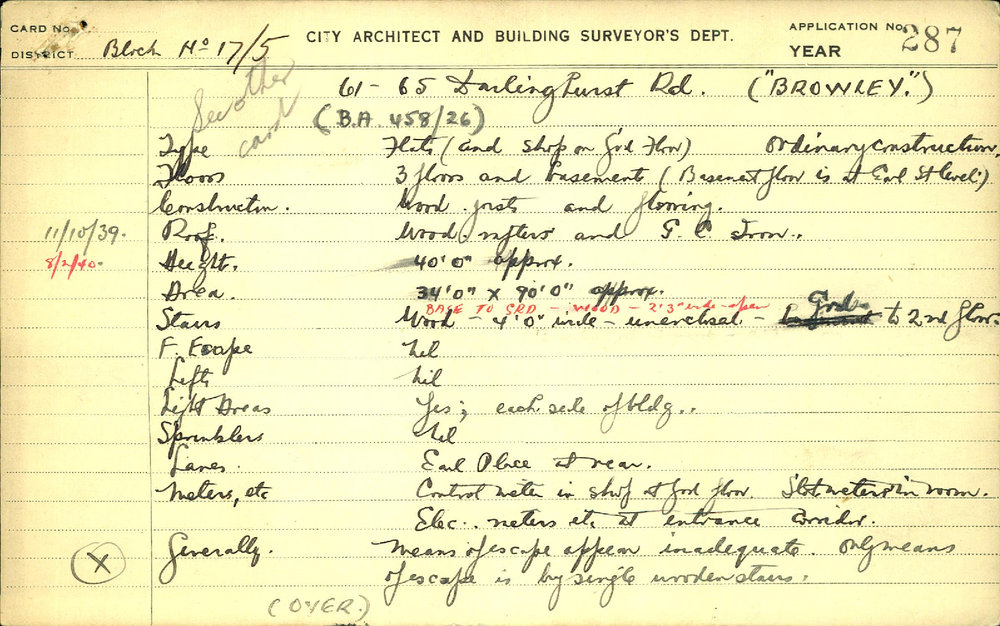 CARD No.
DISTRICT Block No 17/5
CITY ARCHITECT AND BUILDING SURVEYOR'S DEPT.
APPLICATION No. 287
YEAR
See other card
61 - 65 Darlinghurst Rd. ("BROWLEY.")
(B.A 458/26)
Type Flats (and shop on Grd Floor) Ordinary construction.
Floors 3 floors and basement (Basement floor is at Earl St level.)
Construction. Wood joists and flooring.
11/10/39. Roof. Wood rafters and G. C. Iron.
8/2/40. Height. 40'0" approx.
Area. 34'0" x 90'0" approx.
BASE TO GRD - WOOD - 2'3" wide - open
Stairs Wood - 4'0" wide - unenclosed - Grd to 2nd floor.
F. Escape nil
Lifts nil
Light Areas Yes; each side of bldg..
Sprinklers nil
Lanes. Earl Place at rear.
Meters, etc Control meter in shop at grd floor. Slot meters in room.
Elec.. meters etc at entrance corridor.
X Generally. Means of escape appear inadequate. Only means
of escape is by single wooden stairs.
(OVER.)